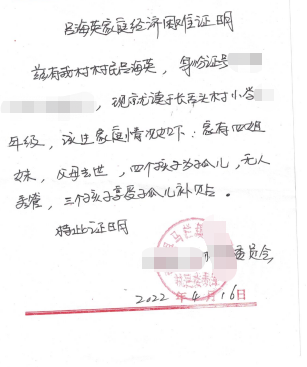 吕海英家庭经济困难证明
兹有我村村民吕海英，身份证号
，现就读于长 头村小学
年级，该生家庭情况如下：家有四姐
妹，父母去世，四个孩子为孤儿，无人
看管，三个孩子享受孤儿补贴。
特此证明
委员会
2022年4月16日